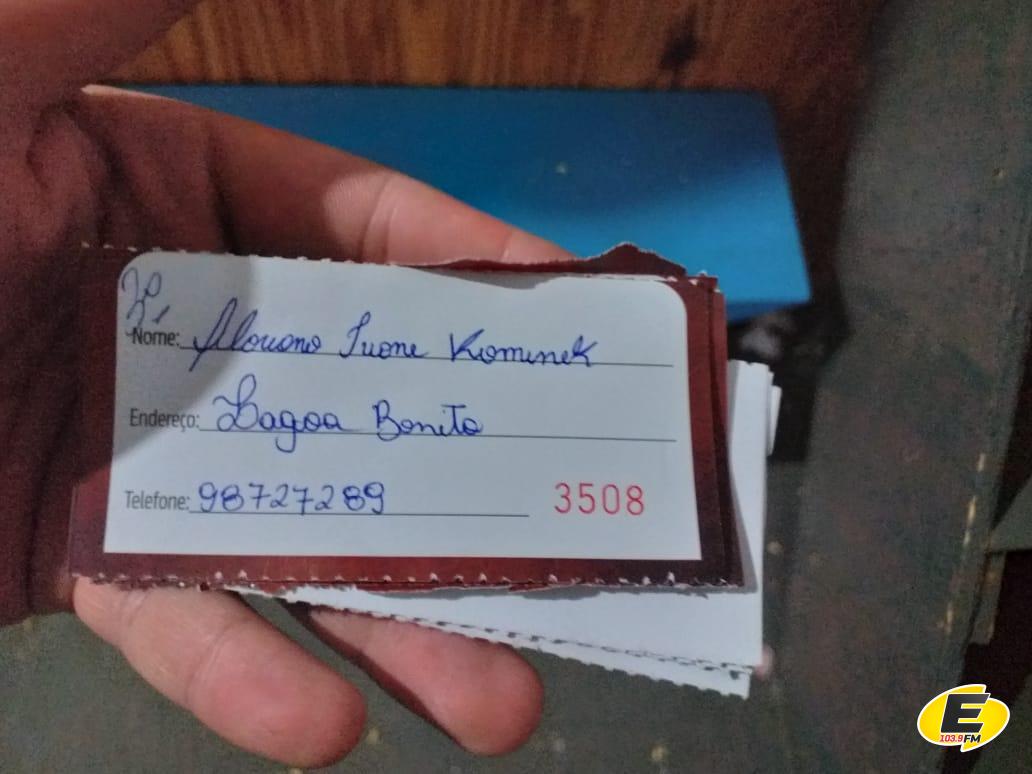 2º
Nome: Ivone Kominek
Endereço: Lagoa Bonita
Telefone: 98727289 3508
E
103.9FM